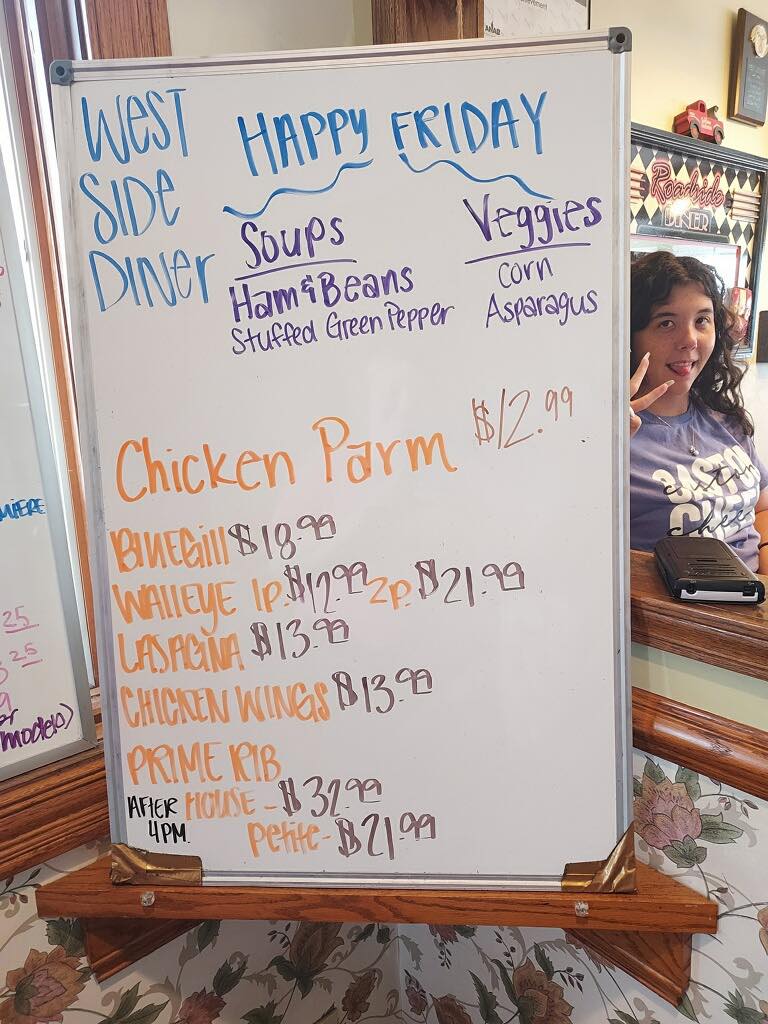 WEST
SIDE
DINER
HAPPY FRIDAY
Soups
Ham & Beans
Stuffed Green Pepper
Veggies
Corn
Asparagus
Chicken Parm $12.99
BlUEGill $18.99
WAllEYE 1p. $12.99 2p. $21.99
LASAGNA $13.99
CHICKEN WINGS $13.99
PRIME RIB
AFTER
4PM.
HOUSE - $32.99
Petite - $21.99
Roadside
DINER
25
25
models)